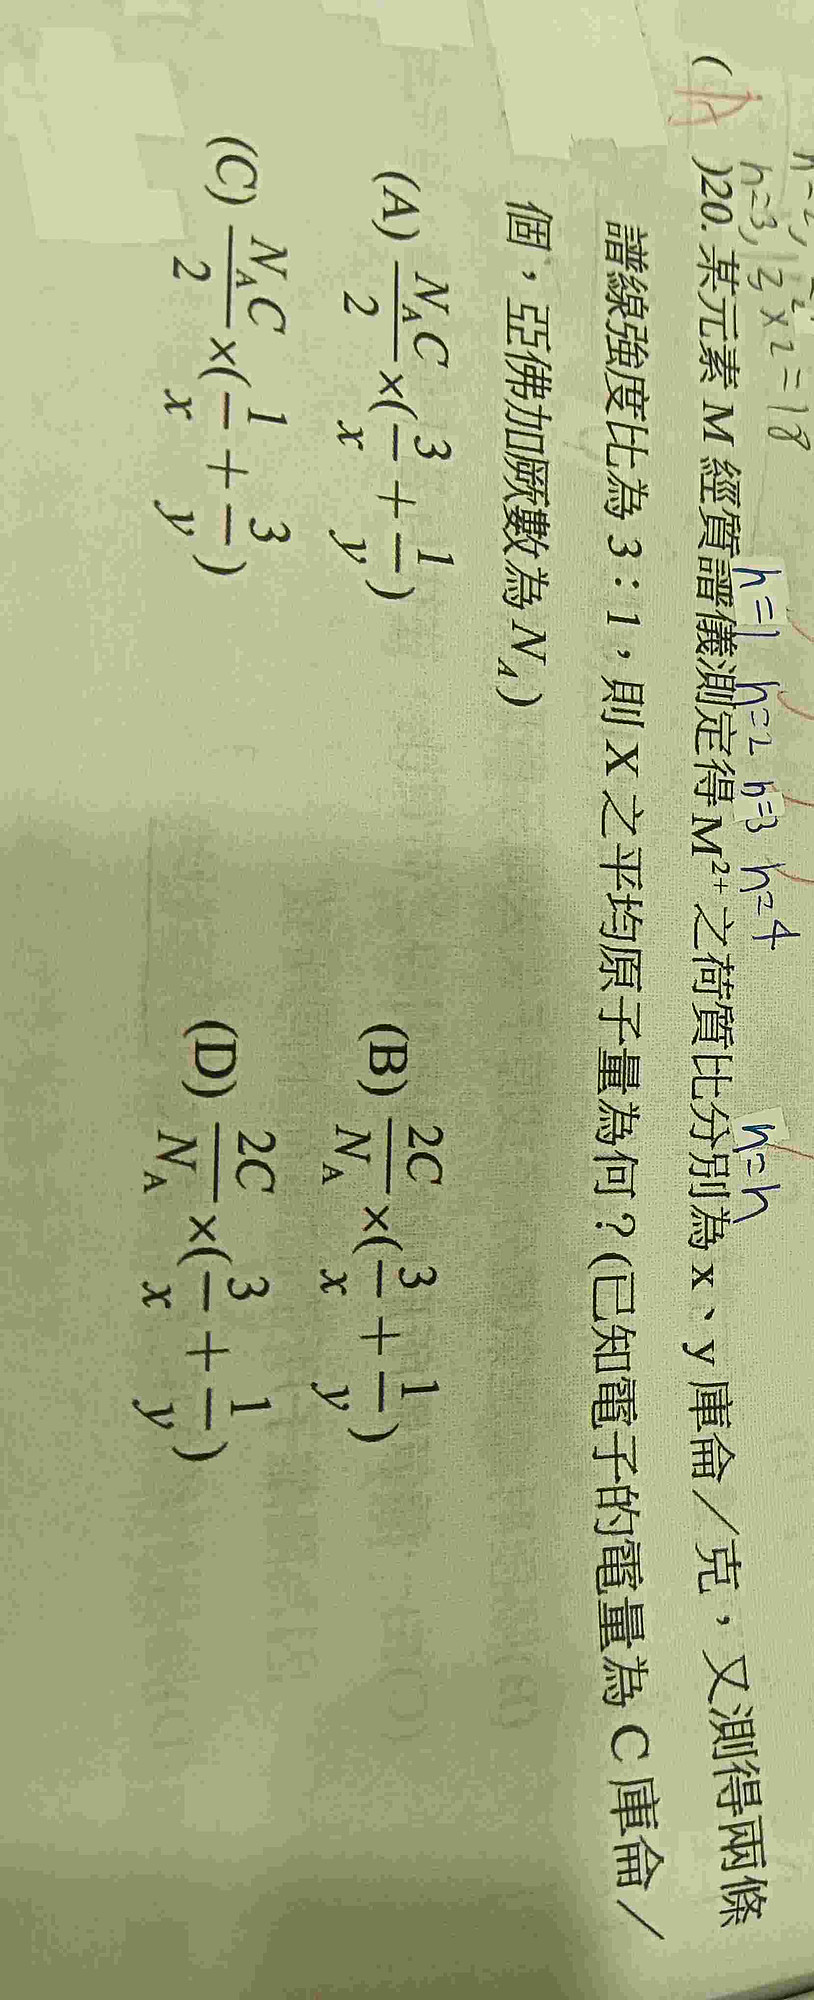 n=3, 3² × 2 = 18
n=1 n=2 n=3 n=4 n=n
( A )20. 某元素 M 經質譜儀測定得 M²⁺ 之荷質比分別為 x、y 庫侖／克，又測得兩條
譜線強度比為 3：1，則 X 之平均原子量為何？(已知電子的電量為 C 庫侖／
個，亞佛加厥數為 N_A)
(A) N_A C/2 ×(3/x + 1/y) (B) 2C/N_A ×(3/x + 1/y)
(C) N_A C/2 ×(1/x + 3/y) (D) 2C/N_A ×(3/x + 1/y)